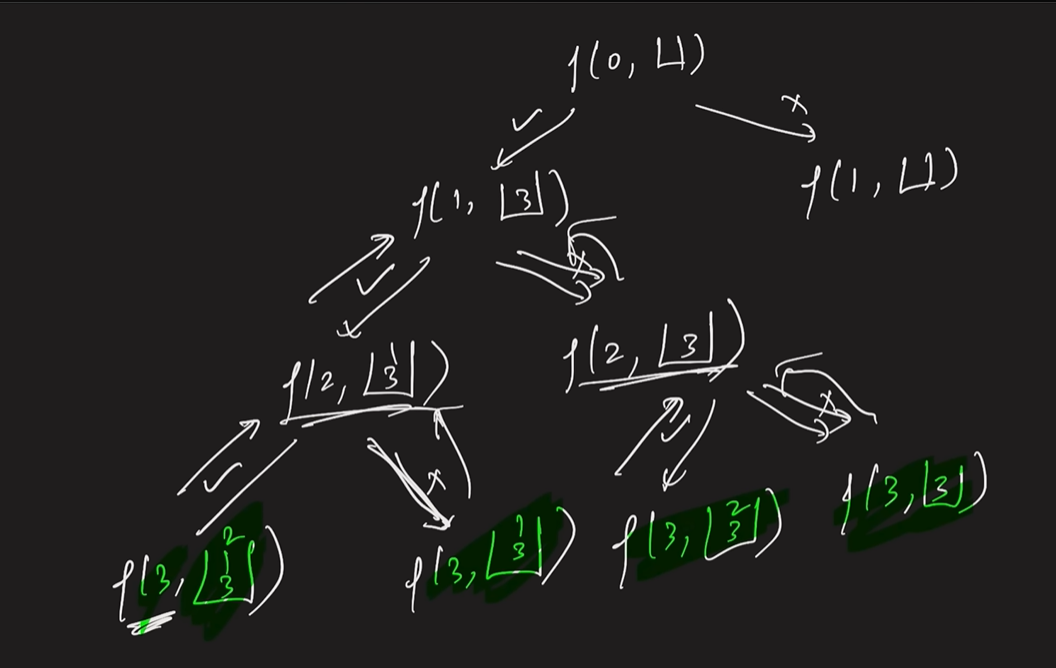 f(0, [ ])
✓ x
f(1, [3]) f(1, [ ])
✓ x
f(2, [1 3]) f(2, [3])
✓ x ✓ x
f(3, [2 1 3]) f(3, [1 3]) f(3, [2 3]) f(3, [3])